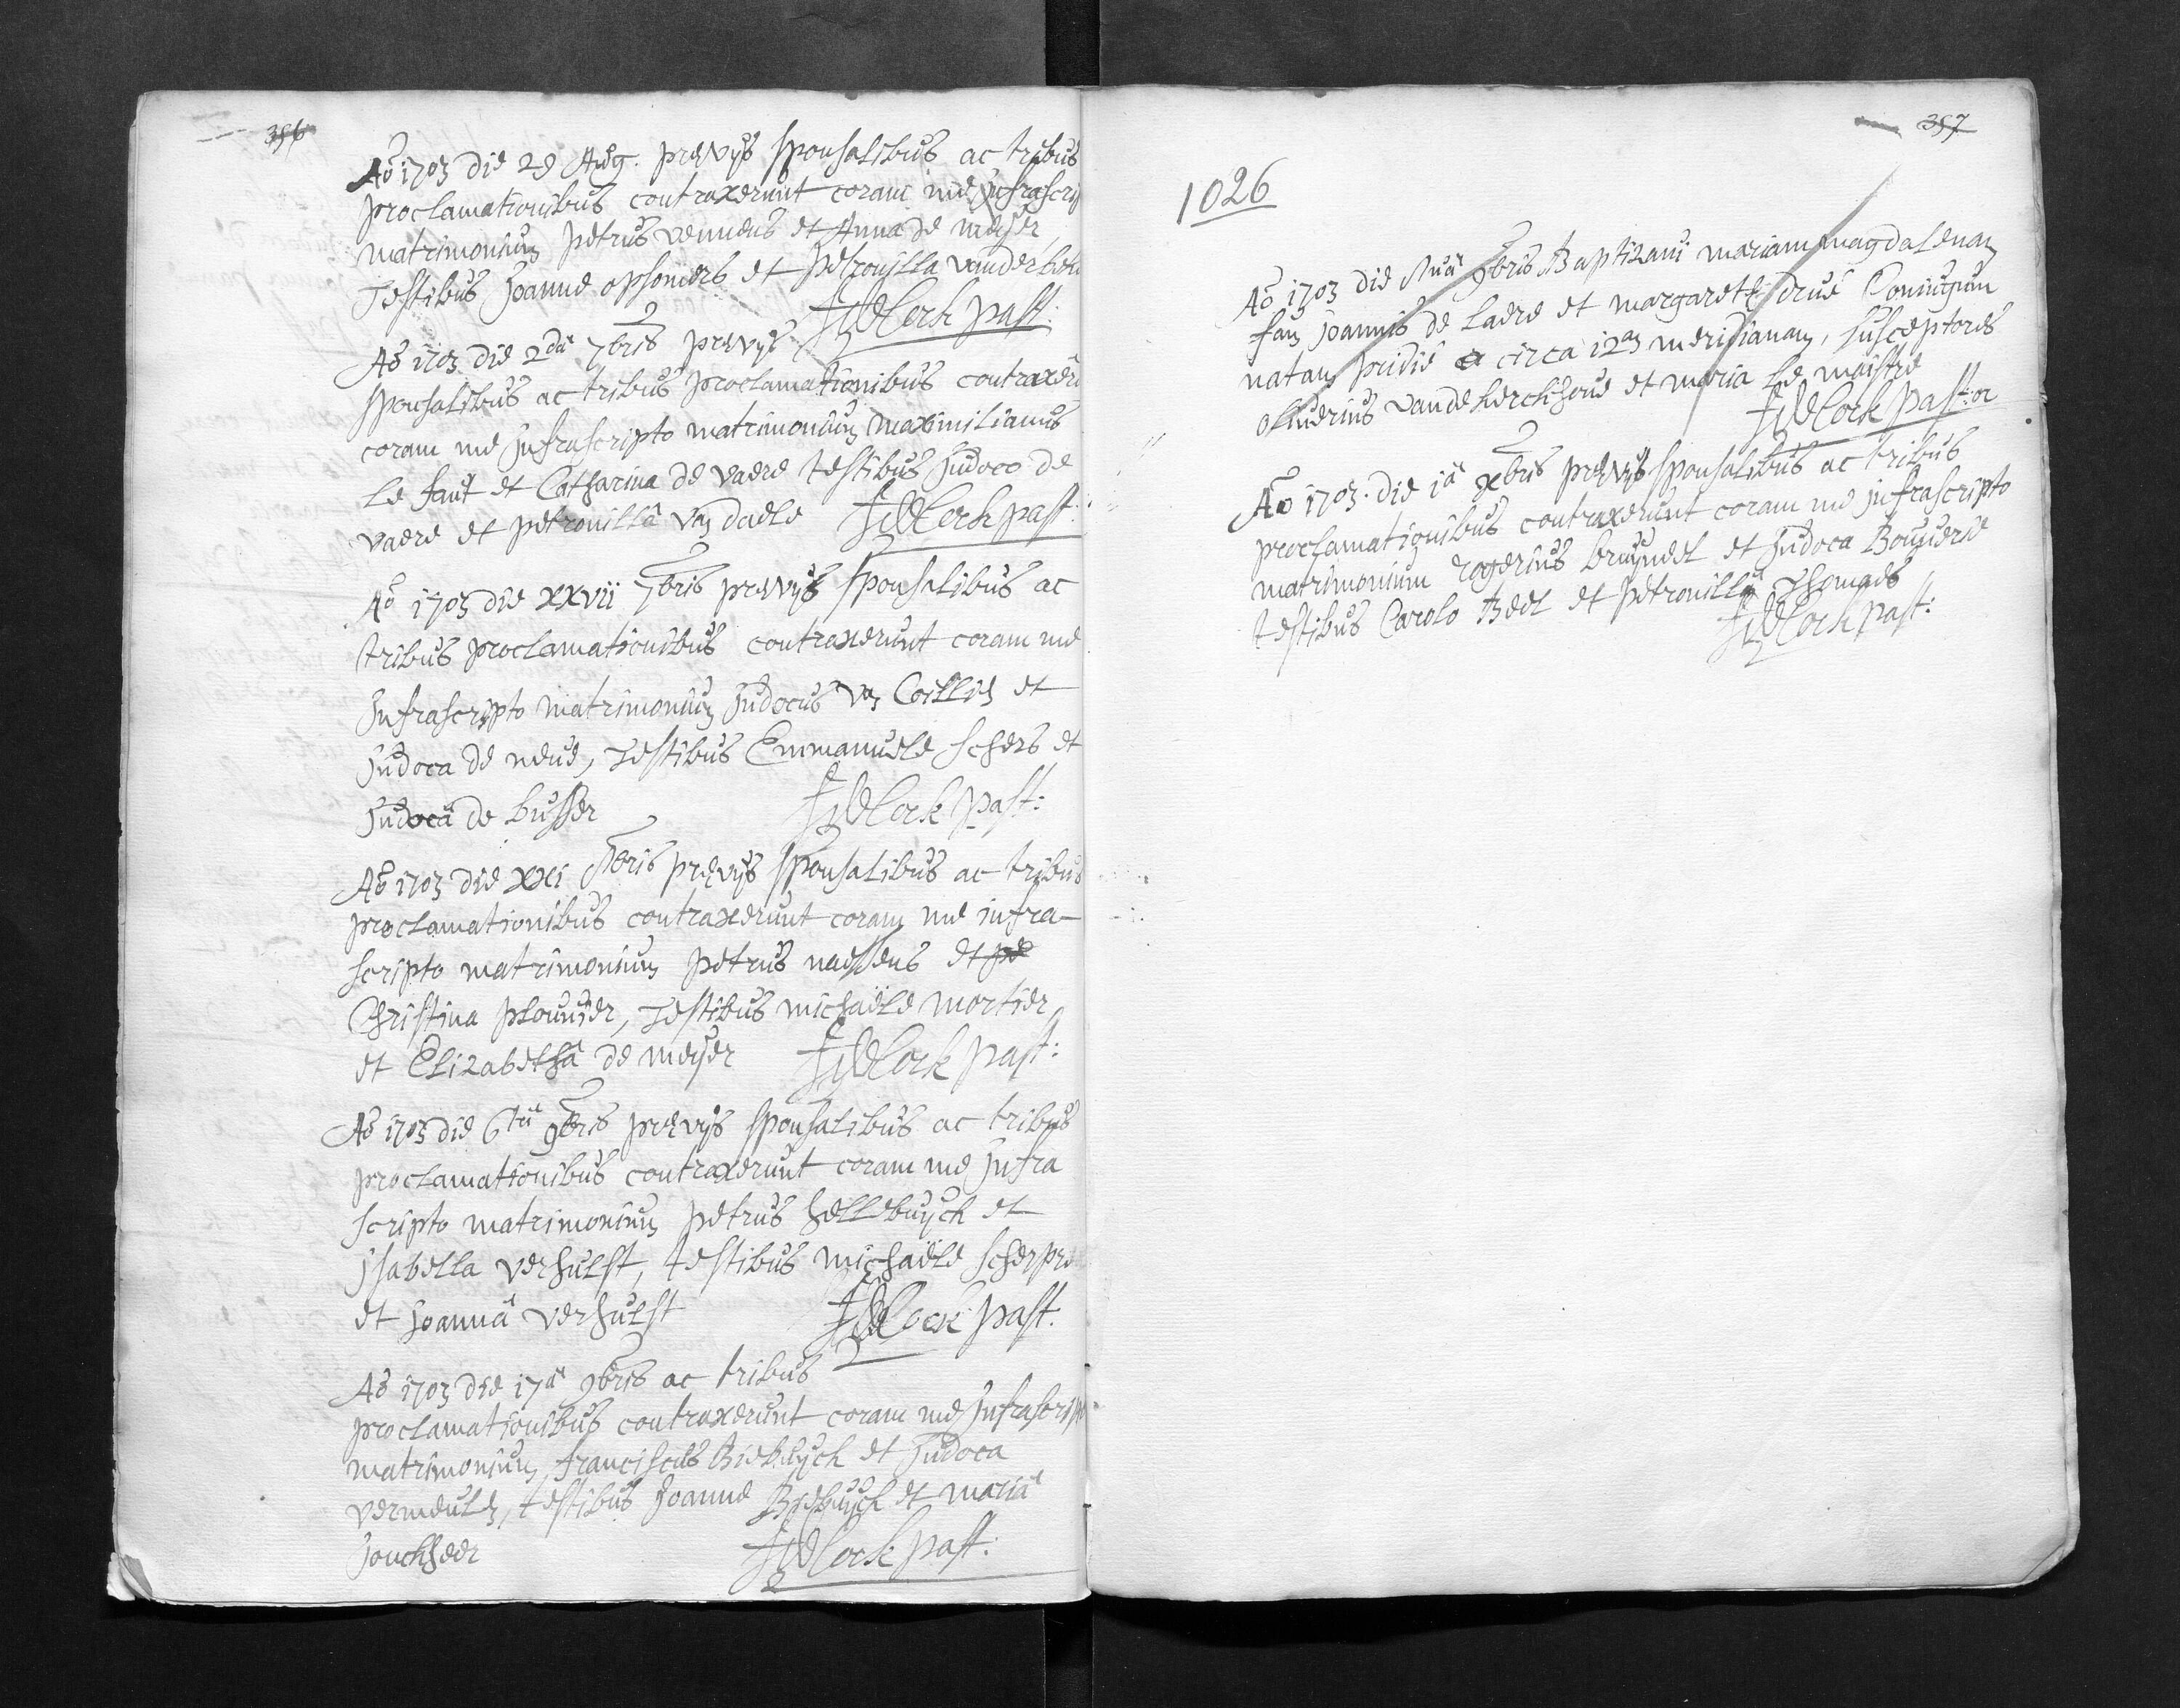 356
Ao 1703 die 29 Aug. prævijs sponsalibus ac tribus
proclamationibus contraxerunt coram me jnfrascrip
matrimonium petrus vennens et Anna de meyer
Testibus Joanne opsomers et petronilla vander
past:
Ao 1703 die 2dâ 7bris prævijs
sponsalibus ac tribus proclamationibus contraxeru
coram me jnfrascripto matrimonium maximilianus
le faut et Catharina de vaere testibus Judoco de
vaere et petronillâ van daele past:
Ao 1703 die xxvii 7bris prævijs sponsalibus ac
tribus proclamationibus contraxerunt coram me
Jnfrascripto matrimonium Judocus van Coillie et
Judoca de neue, Testibus Emmanuele scherb et
Judocâ de busser past:
Ao 1703 die xxi 8bris prævijs sponsalibus ac tribus
proclamationibus contraxerunt coram me infra-
scripto matrimonium petrus naessens et pe
Christina plouuier, Testibus michaële mortier
et Elizabethâ de meyer past:
Ao 1703 die 6tâ 9bris prævijs sponsalibus ac tribus
proclamationibus contraxerunt coram me jnfra
scripto matrimonium petrus hellebuyck et
Jsabella verhulst, testibus michaële scherpre
et Joannâ verhulst past.
Ao 1703 die 17â 9bris ac tribus
proclamationibus contraxerunt coram me Jnfrascrip
matrimonium, franciscus Biebuyck et Judoca
vermeulen, testibus Joanne Biebuyck et mariâ
Jonckheer past:
357
1026
Ao 1703 die 9bris Baptizaui mariam magdalenam
fam Joannis de laere et margaretæ drue Coniugum
natam pridie circa 12am meridianam, susceptores
oliuerius vande kerckhoue et maria le maistre
past:or
Ao 1703. die 1â xbris prævijs sponsalibus ac tribus
proclamationibus contraxerunt coram me jnfrascripto
matrimonium rogerius bruyneel et Judoca Bouuerie
testibus Carolo Beel et petronillâ Thomaes
past: